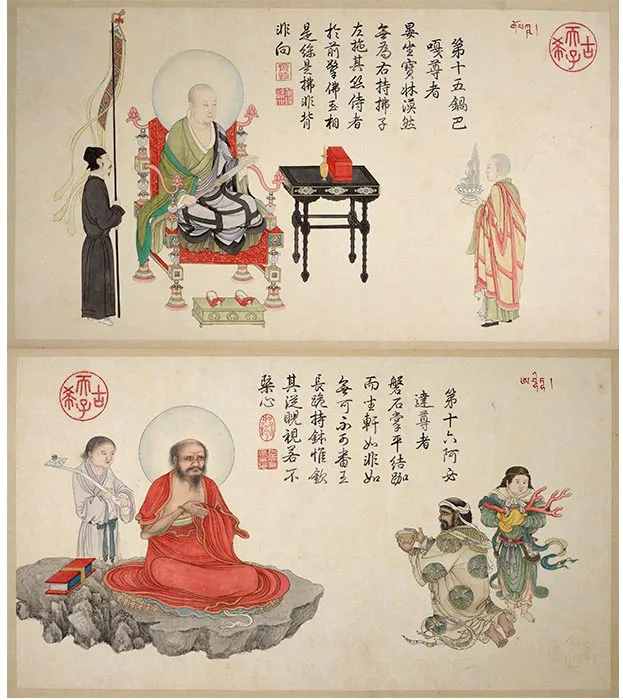 古希天子
第十五鍋巴
嘎尊者
晏坐寶牀漠然
無為右持拂子
左拖其絲侍者
於前擎佛玉相
是絲是拂非背
非向
第十六阿必
達尊者
磐石掌平結跏
而坐軒如非如
無可不可番王
長跪持鉢惟欽
其從睨視若不
槩心
古希天子